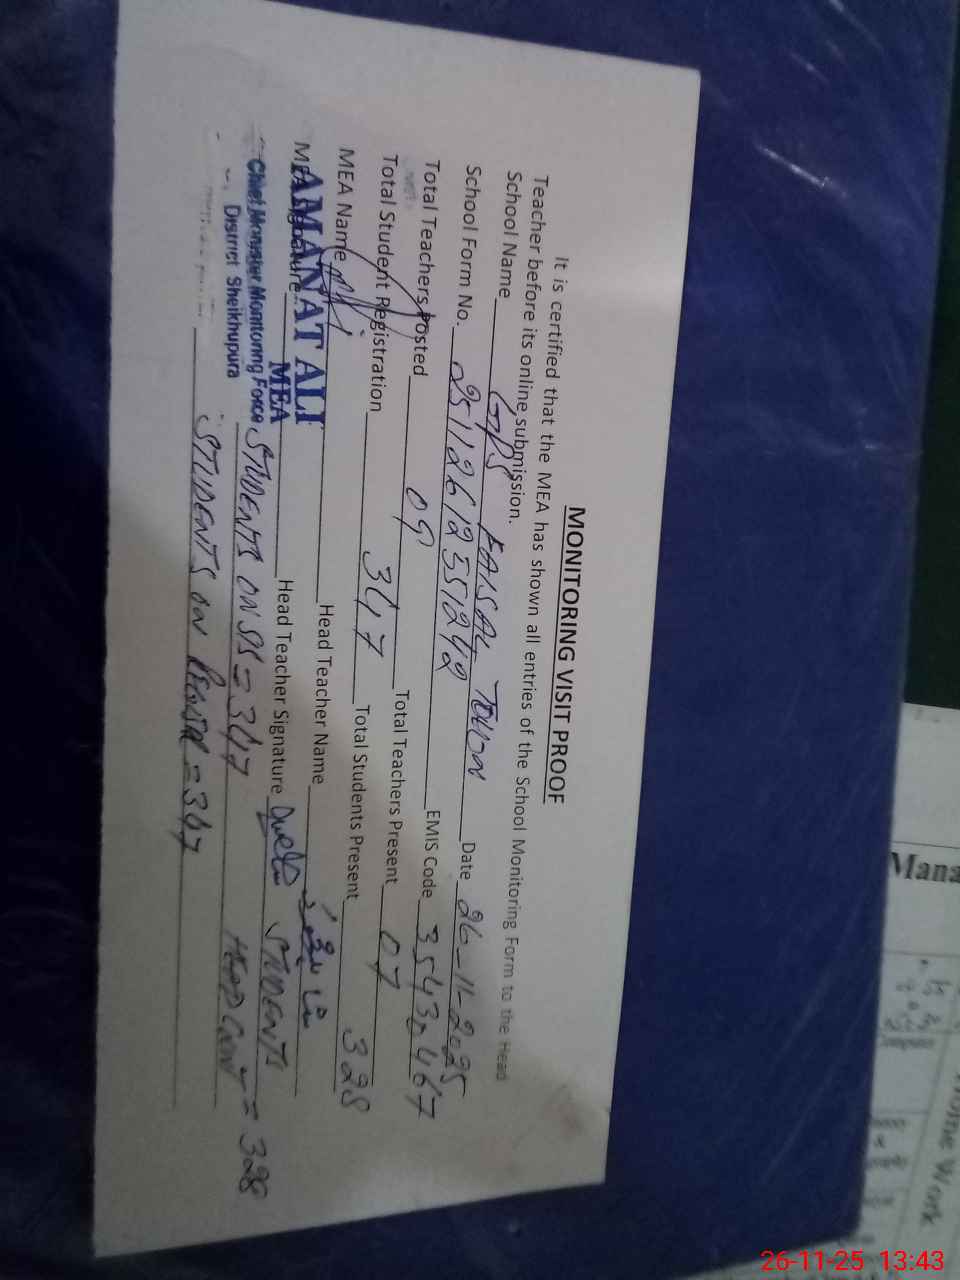 MONITORING VISIT PROOF
It is certified that the MEA has shown all entries of the School Monitoring Form to the Head
Teacher before its online submission.
School Name GPS FAISAL TOWN Date 26-11-2025
School Form No. 251126123551242 EMIS Code 35430467
Total Teachers Posted 09 Total Teachers Present 07
Total Student Registration 347 Total Students Present 328
MEA Name Head Teacher Name
MEA Signature Head Teacher Signature
AMANAT ALI
MEA
Chief Minister Monitoring Force
District Sheikhupura
STUDENTS ON SIS = 347 STUDENTS HEAD COUNT = 328
STUDENTS ON REGISTER = 347
Mana
Computer
&
Home Work
26-11-25 13:43